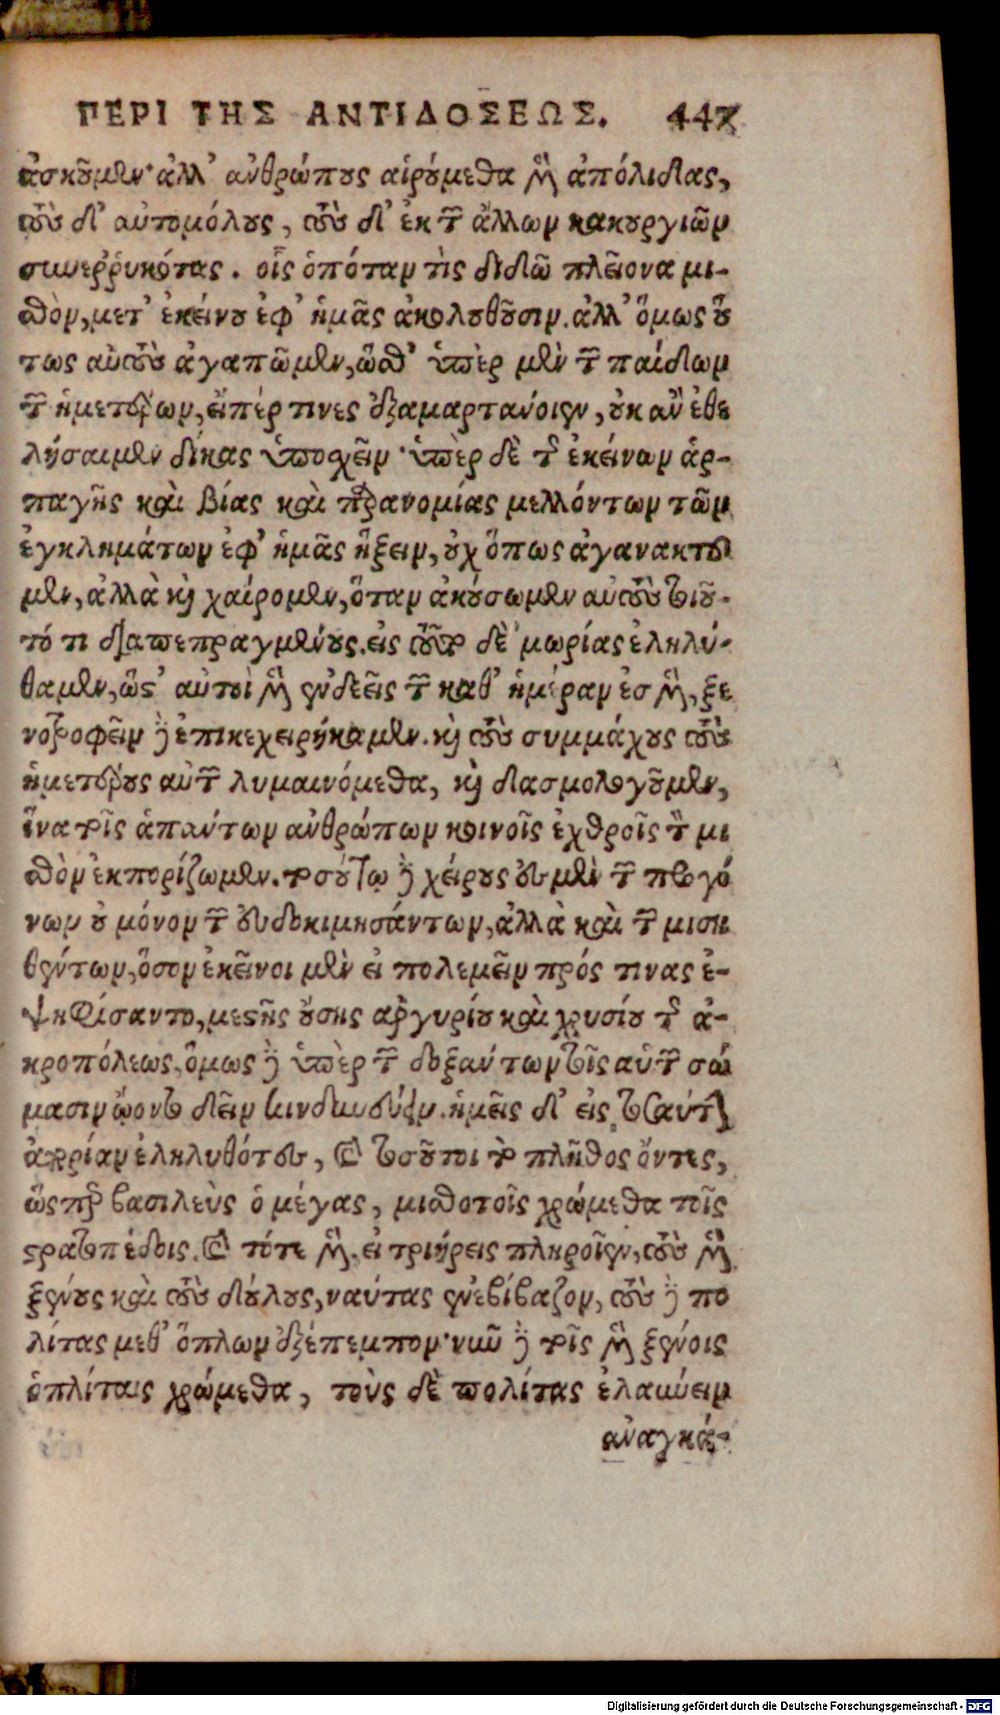 ΠΕΡΙ ΤΗΣ ΑΝΤΙΔΟΣΕΩΣ. 447
ἀσκοῦμεν· ἀλλ' ἀνθρώπους αἱρούμεθα τοὺς μὲν ἀπόλιδας,
τοὺς δ' αὐτομόλους, τοὺς δ' ἐκ τῶν ἄλλων κακουργιῶν
συνερρυηκότας. οἷς ὁπόταν τὶς διδῶ πλείονα μι-
σθὸν, μετ' ἐκείνου ἐφ' ἡμᾶς ἀκολουθοῦσιν. ἀλλ' ὅμως οὕ
τως αὐτοὺς ἀγαπῶμεν, ὥσθ' ὑπὲρ μὲν τῶν παίδων
τῶν ἡμετέρων, εἴπέρ τινες ἐξαμαρτάνοιεν, οὐκ ἂν ἐθε
λήσαιμεν δίκας ὑποσχεῖν· ὑπὲρ δὲ τῆς ἐκείνων ἁρ-
παγῆς καὶ βίας καὶ παρανομίας μελλόντων τῶν
ἐγκλημάτων ἐφ' ἡμᾶς ἥξειν, οὐχ ὅπως ἀγανακτοῦ
μεν, ἀλλὰ καὶ χαίρομεν, ὅταν ἀκούσωμεν αὐτοὺς τοιοῦ-
τό τι διαπεπραγμένους. εἰς τοῦτο δὲ μωρίας ἐληλύ-
θαμεν, ὥστ' αὐτοὶ μὲν ἐνδεεῖς τῶν καθ' ἡμέραν ἐσμὲν, ξε
νοτροφεῖν δὲ ἐπικεχειρήκαμεν. καὶ τοὺς συμμάχους τοὺς
ἡμετέρους αὐτῶν λυμαινόμεθα, καὶ δασμολογοῦμεν,
ἵνα τοῖς ἁπάντων ἀνθρώπων κοινοῖς ἐχθροῖς τὸν μι
σθὸν ἐκπορίζωμεν. τοσούτῳ δὲ χείρους ἐσμὲν τῶν προγό
νων οὐ μόνον τῶν εὐδοκιμησάντων, ἀλλὰ καὶ τῶν μιση
θέντων, ὅσον ἐκεῖνοι μὲν εἰ πολεμεῖν πρός τινας ἐ-
ψηφίσαντο, μεστῆς οὔσης ἀργυρίου καὶ χρυσίου τῆς ἀ-
κροπόλεως, ὅμως δὲ ὑπὲρ τῶν δοξάντων τοῖς αὑτῶν σώ
μασιν ᾤοντο δεῖν κινδυνεύειν. ἡμεῖς δ' εἰς τοσαύτην
ἀπορίαν ἐληλυθότες, καὶ τοσοῦτοι τὸ πλῆθος ὄντες,
ὥσπερ βασιλεὺς ὁ μέγας, μισθοτοῖς χρώμεθα τοῖς
στρατοπέδοις. καὶ τότε μὲν, εἰ τριήρεις πληροῖεν, τοὺς μὲν
ξένους καὶ τοὺς δούλους, ναύτας ἐνεβίβαζον, τοὺς δὲ πο
λίτας μεθ' ὅπλων ἐξέπεμπον· νῦν δὲ τοῖς μὲν ξένοις
ὁπλίταις χρώμεθα, τοὺς δὲ πολίτας ἐλαύνειν
ἀναγκά-
Digitalisierung gefördert durch die Deutsche Forschungsgemeinschaft - DFG